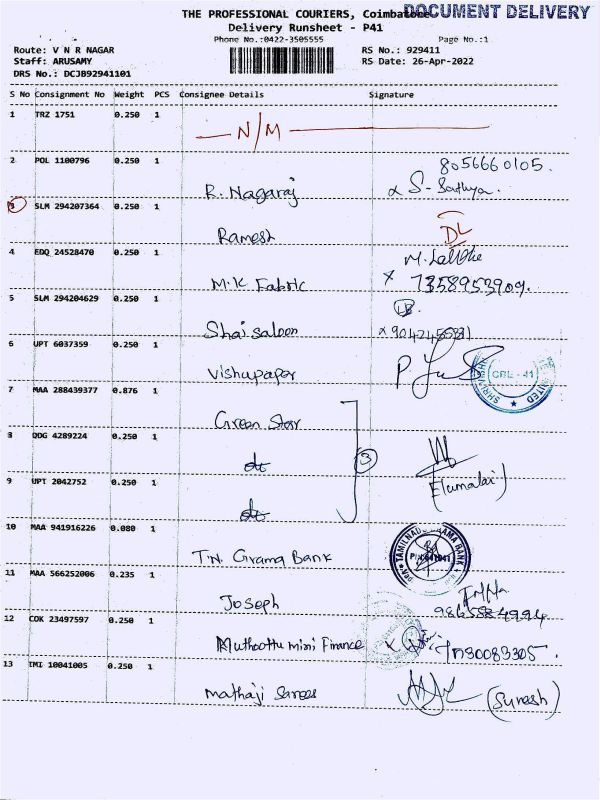 THE PROFESSIONAL COURIERS, Coimbatore
DOCUMENT DELIVERY
Delivery Runsheet - P41
Phone No.:0422-3505555 Page No.:1
Route: V N R NAGAR RS No.: 929411
Staff: ARUSAMY RS Date: 26-Apr-2022
DRS No.: DCJB92941101
S No Consignment No Weight PCS Consignee Details Signature
1 TRZ 1751 0.250 1
N/M
2 POL 1100796 0.250 1 8056660105.
R. Nagaraj S- Sathya.
3 SLM 294207364 0.250 1
Ramesh DL
4 EDQ 24528470 0.250 1 M.
M.K Fabric x 7358953909.
5 SLM 294204629 0.250 1
Shai saloon
6 UPT 6037359 0.250 1
Vishupaper P. CBE - 41
7 MAA 288439377 0.876 1
Green Star
8 QDG 4289224 0.250 1
do 3
(Elumalai)
9 UPT 2042752 0.250 1
do
10 MAA 941916226 0.080 1
T.N. Grama Bank TAMILNADU GRAMA BANK
11 MAA 566252006 0.235 1
Joseph 9865584994
12 COK 23497597 0.250 1
Muthoottu mini Finance
13 IMI 10041005 0.250 1
Mathaji Sarees (Suresh)